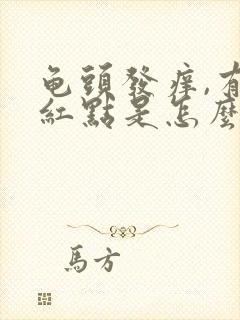 龟頭發痒,有
紅點是怎麼
馬方